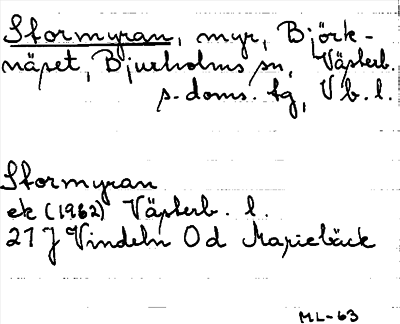 Stormyran, myr, Björk-
näset, Bjurholms sn, Västerb.
s. doms. tg, Vb. l.
Stormyran
ek (1962) Västerb. l.
21 J Vindeln 0d Mariebäck
ML-63